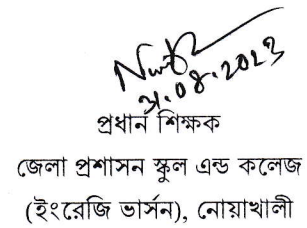 .08.2023
প্রধান শিক্ষক
জেলা প্রশাসন স্কুল এন্ড কলেজ
(ইংরেজি ভার্সন), নোয়াখালী